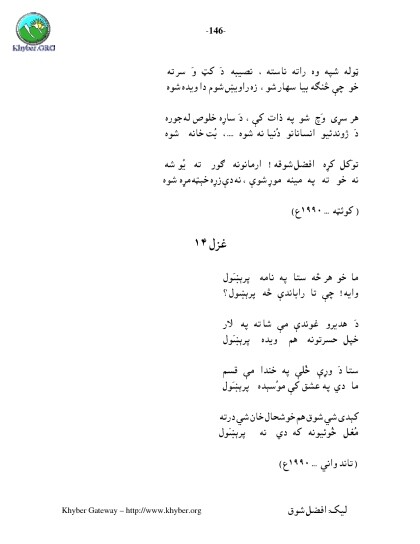 -146-
Khyber.ORG
ټوله شپه وه راته ناسته ، نصيبه دَ کټ وَ سر ته
خو چې څنګه بيا سهار شو ، زه راويښ شوم دا ويده شوه
هر سړى وَچ شو په ذات کې ، دَ ساړه خلوص له جوره
دَ ژوندنيو انسانانو دُنيا نه شوه ...، بُت خانه شوه
توکل کړه افضل شوقه ! ارمانونه ګور ته يُو شه
نه خو ته په مينه موړ شوې ، نه دې زړه خېټه مړه شوه
( کوئټه ... ١٩٩٠ع )
غزل ١۴
ما خو هر څه ستا په نامه پرېښوَل
وايه! چې تا راباندې څه پرېښوَل؟
دَ هديرو غوندې مې شاته په لار
خپل حسرتونه هم ويده پرېښوَل
ستا دَ وړې خُلې په خندا مې قسم
ما دې په عشق کې موُسېده پرېښوَل
کېدى شي شوق هم خوشحال خان شي درته
مُغل خُوئيونه که دې نه پرېښوَل
( تاند واني ... ١٩٩٠ع )
ليک: افضل شوق
Khyber Gateway – http://www.khyber.org